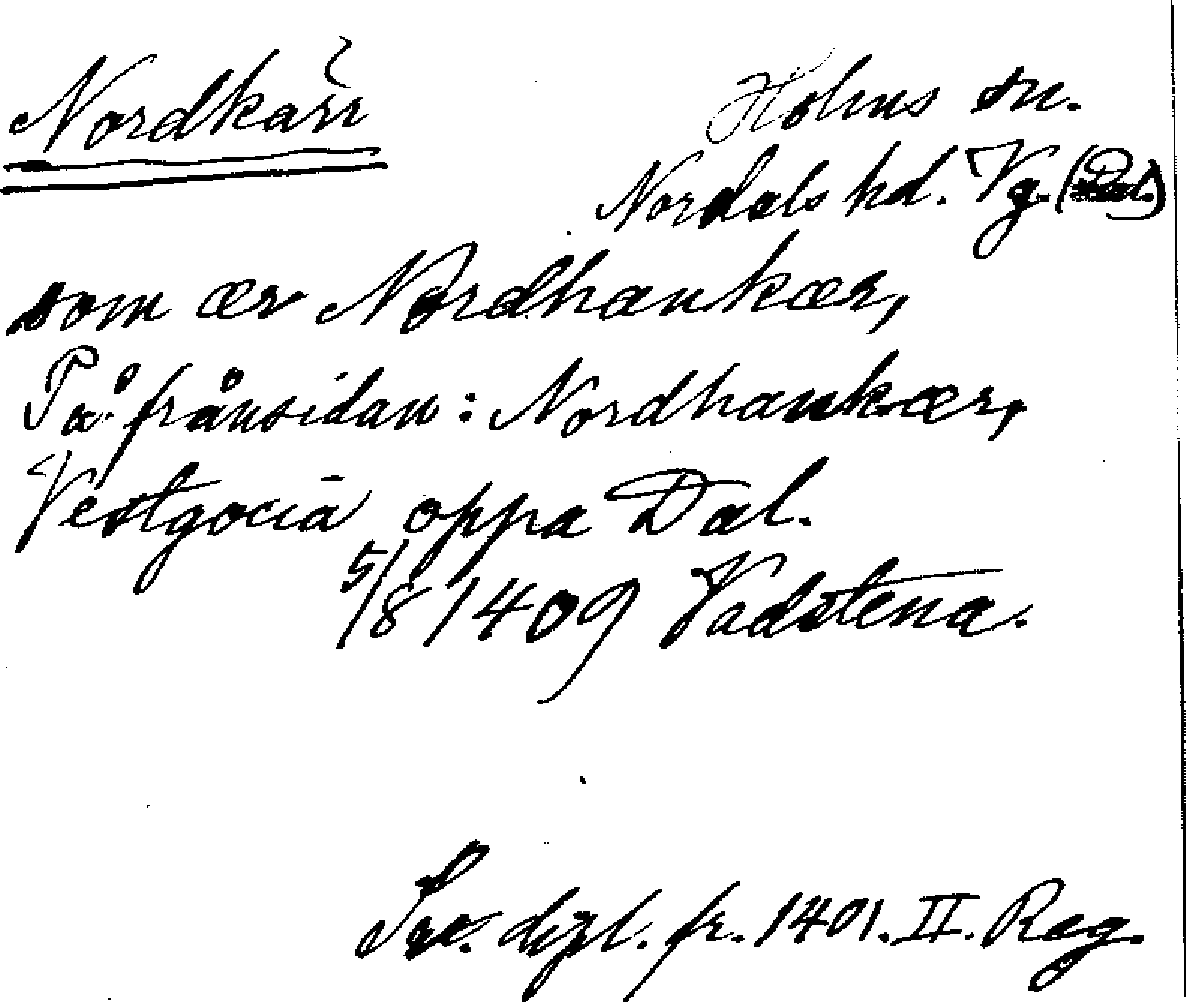 Nordkärr
Holms sn.
Nordals hd. Vg. (Dal.)
som ær Nordhankær,
På frånsidan: Nordhankær,
Vestgocia oppa Dal.
5/8 1409 Vadstena.
Sv. dipl. fr. 1401. II. Reg.